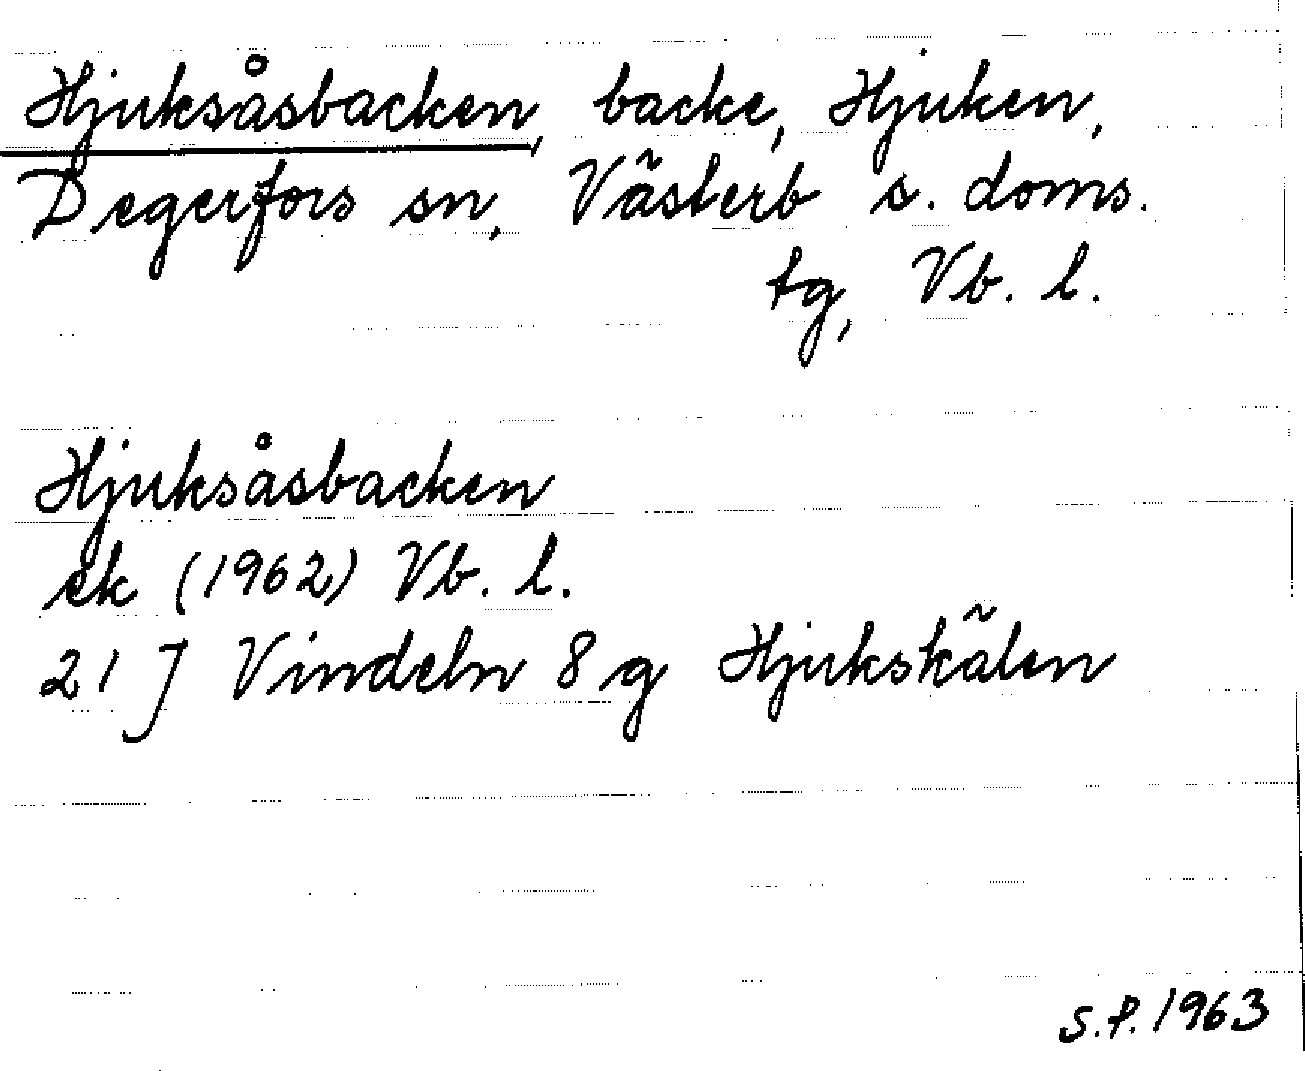 Hjuksåsbacken, backe, Hjuken,
Degerfors sn, Västerb s. doms.
tg, Vb. l.
Hjuksåsbacken
ek (1962) Vb. l.
21 J Vindeln 8 g Hjukskälen
S.P. 1963